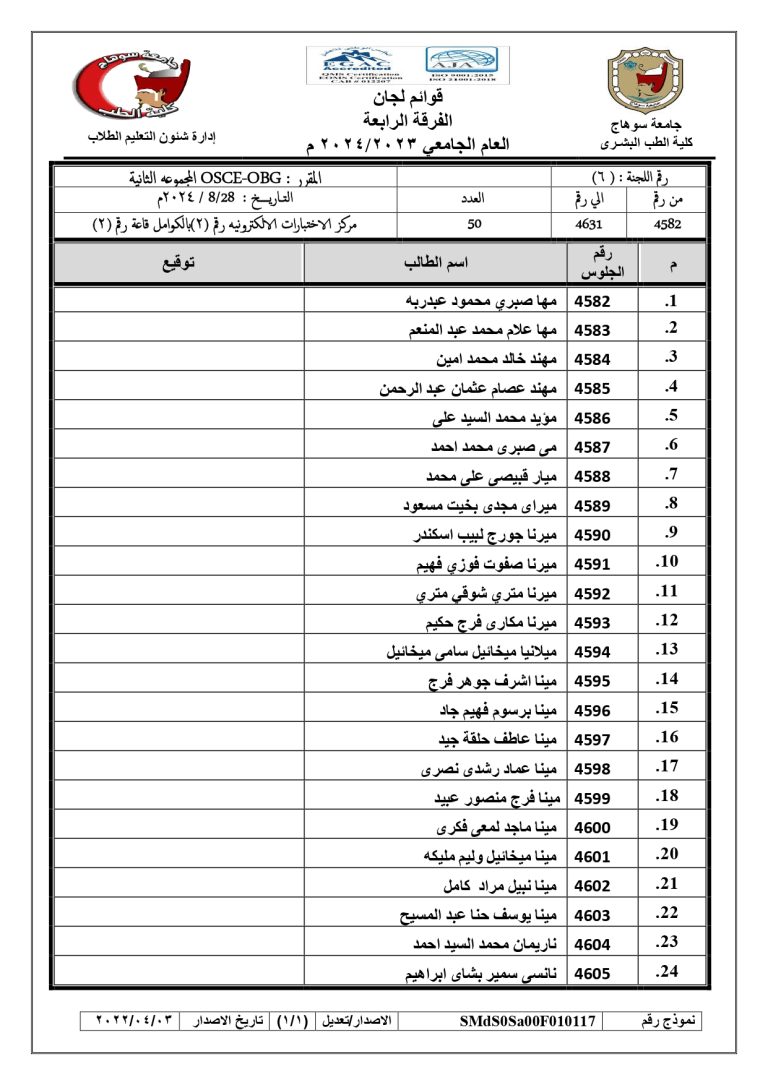 جامعة سوهاج
كلية الطب البشرى
EGAC
Accredited
QMS Certification
EOMS Certification
CAB # 012207
AJA
ISO 9001:2015
ISO 21001:2018
جامعة سوهاج
كلية الطب
إدارة شئون التعليم الطلاب
قوائم لجان
الفرقة الرابعة
العام الجامعي ٢٠٢٤/٢٠٢٣ م
رقم اللجنة : ( ٦ ) المقرر : OSCE-OBG المجموعه الثانية
من رقم الي رقم العدد التاريخ : 8/28 / ٢٠٢٤م
4582 4631 50 مركز الاختبارات الالكترونيه رقم (٢)بالكوامل قاعة رقم (٢)
م رقم الجلوس اسم الطالب توقيع
1. 4582 مها صبري محمود عبدربه
2. 4583 مها علام محمد عبد المنعم
3. 4584 مهند خالد محمد امين
4. 4585 مهند عصام عثمان عبد الرحمن
5. 4586 مؤيد محمد السيد على
6. 4587 مى صبرى محمد احمد
7. 4588 ميار قبيصى على محمد
8. 4589 ميراى مجدى بخيت مسعود
9. 4590 ميرنا جورج لبيب اسكندر
10. 4591 ميرنا صفوت فوزي فهيم
11. 4592 ميرنا متري شوقي متري
12. 4593 ميرنا مكارى فرج حكيم
13. 4594 ميلانيا ميخائيل سامى ميخائيل
14. 4595 مينا اشرف جوهر فرج
15. 4596 مينا برسوم فهيم جاد
16. 4597 مينا عاطف حلقة جيد
17. 4598 مينا عماد رشدى نصرى
18. 4599 مينا فرج منصور عبيد
19. 4600 مينا ماجد لمعى فكرى
20. 4601 مينا ميخائيل وليم مليكه
21. 4602 مينا نبيل مراد كامل
22. 4603 مينا يوسف حنا عبد المسيح
23. 4604 ناريمان محمد السيد احمد
24. 4605 نانسى سمير بشاى ابراهيم
نموذج رقم SMdS0Sa00F010117 الاصدار/تعديل (١/١) تاريخ الاصدار ٢٠٢٢/٠٤/٠٣